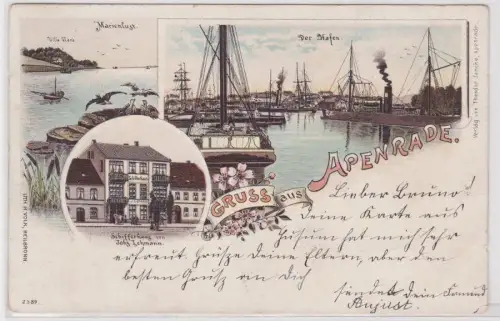 Marienlust.
Villa Klara
Der Hafen.
Verlag v. Theodor Jensen, Apenrade.
GRUSS aus APENRADE.
Schifferhaus von
Joh. Lehmann.
Lieber Bruno!
Deine Karte aus
Husum hat mich sehr
erfreut Grüße deine Eltern, aber den
besten Gruß an Dich
sendet dein Freund
August.